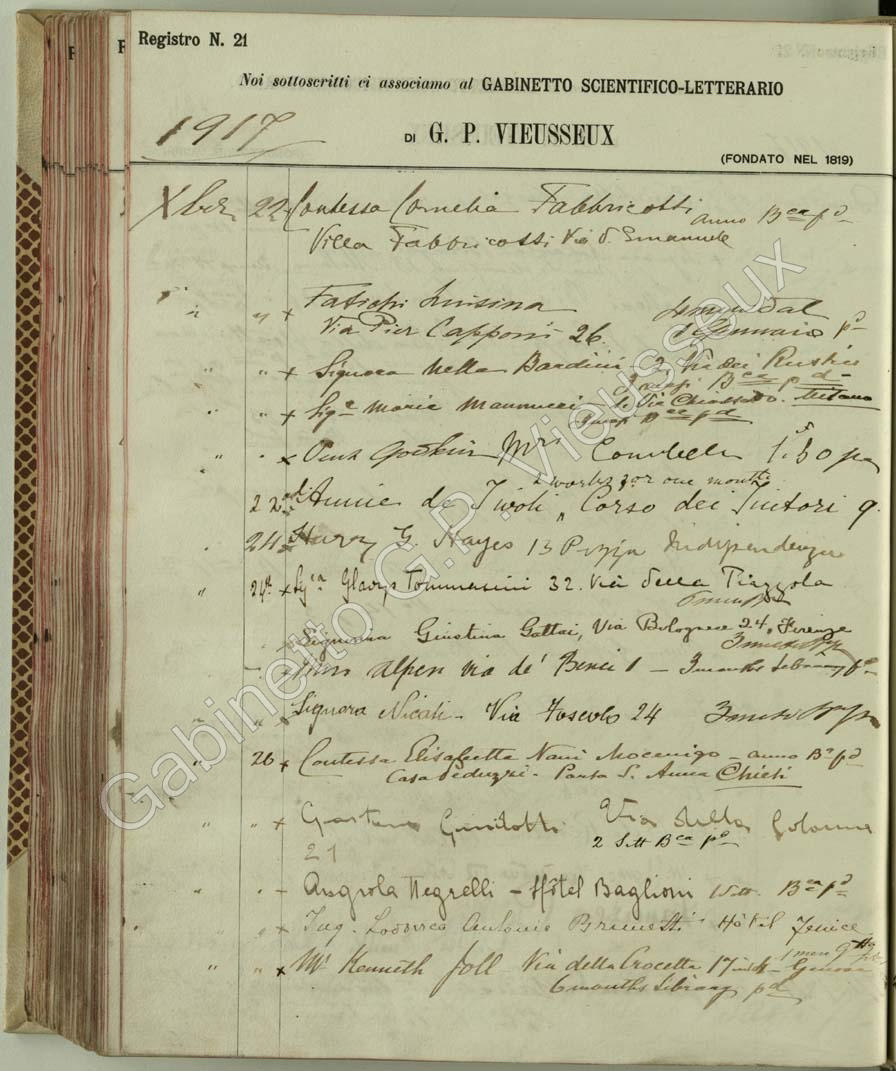 Registro N. 21
Noi sottoscritti ci associamo al GABINETTO SCIENTIFICO-LETTERARIO
1917
DI G. P. VIEUSSEUX
(FONDATO NEL 1819)
Xbre 22 Contessa Cornelia Fabbricotti anno Bca pd
Villa Fabbricotti Via V. Emanuele
" " x Luisina
Via Pier Capponi 26. Gennaio pd
" " x Signora Nella Bardini 2 Via dei Rustici
3 mesi Bca pd
" " x Siga Maria Mannucci Milano
Bca pd
" " x Mrs 1.50
2 works for one month
22 Annie de Tivoli, Corso dei Tintori 9.
" 24 Harry G. Hayes 13 Piazza Indipendenza
" 24 x Sigra Gladys Tommasini 32. Via della Piazzola
Signorina Giustina Gattai, Via Bolognese 24, Firenze
3 mesi
x Alpen via de' Benci 1 - 3 months Library pd
" " Signora Nicati - Via Foscolo 24 3 mesi
" 26 x Contessa Elisabetta Nani Mocenigo - anno Ba pd
Casa - Porta S. Anna Chieti
" " x Gaetano Guidotti Via della Colonna
21 2 Sett Bca pd
" " - Angiola Negrelli - Hôtel Baglioni Bca pd
" " x Ing. Lodovico Antonio Brunetti Hôtel Fenice
" " x Mr Kenneth Joll Via della Crocetta 17 Genova
6 months Library pd
Gabinetto G.P. Vieusseux